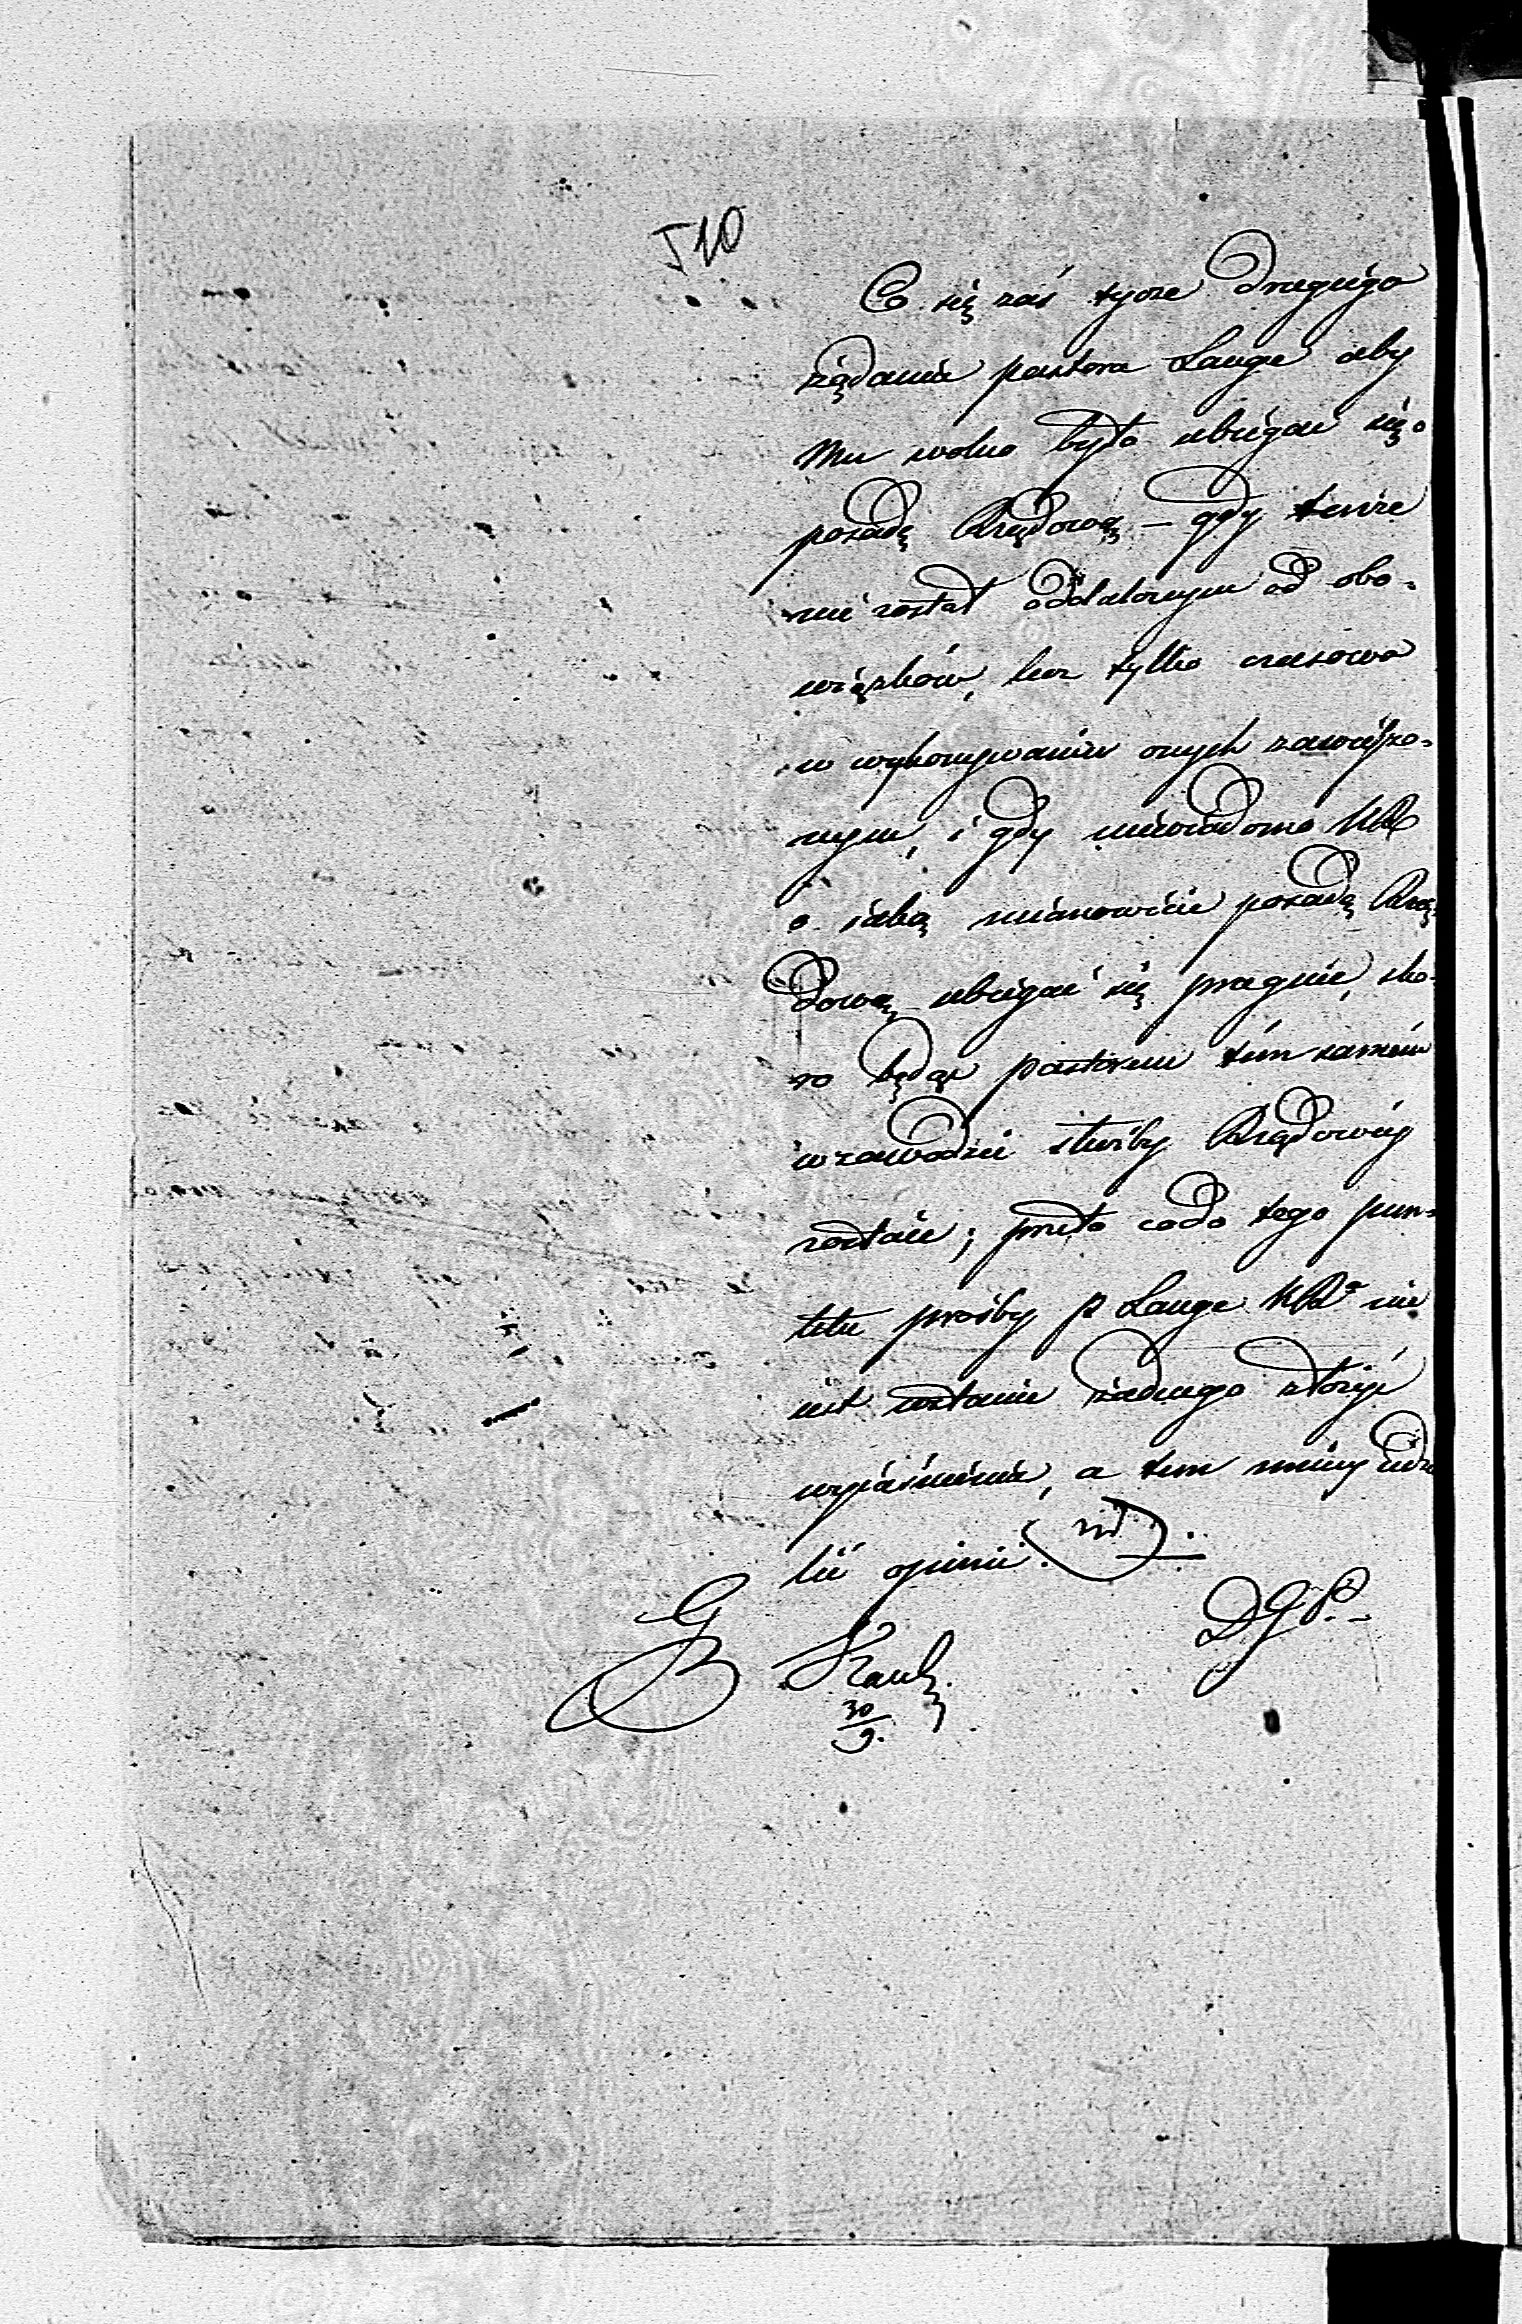 510
Co się zaś tycze drugiégo
żądania pastora Lange aby
mu wolno było ubiegać się o
posadę Rządową – gdy tenże
nie został oddalonym od obo-
wiązków, lecz tylko czasowo
w wykonywaniu onych zawieszo-
nym, i gdy niewiadomo KR
o jaką mianowicie posadę Rzą-
dową ubiegać się pragnie, sko-
ro będąc pastorem tém samém
w zawodzie służby Rządowéj
zostaie; przeto co do tego pun-
ktu prośby p Lange KRa nie
jest w stanie żadnego złożyć
wyjaśnienia, a tem mniéj udzie
lić opinii.
DGP.
30
9.